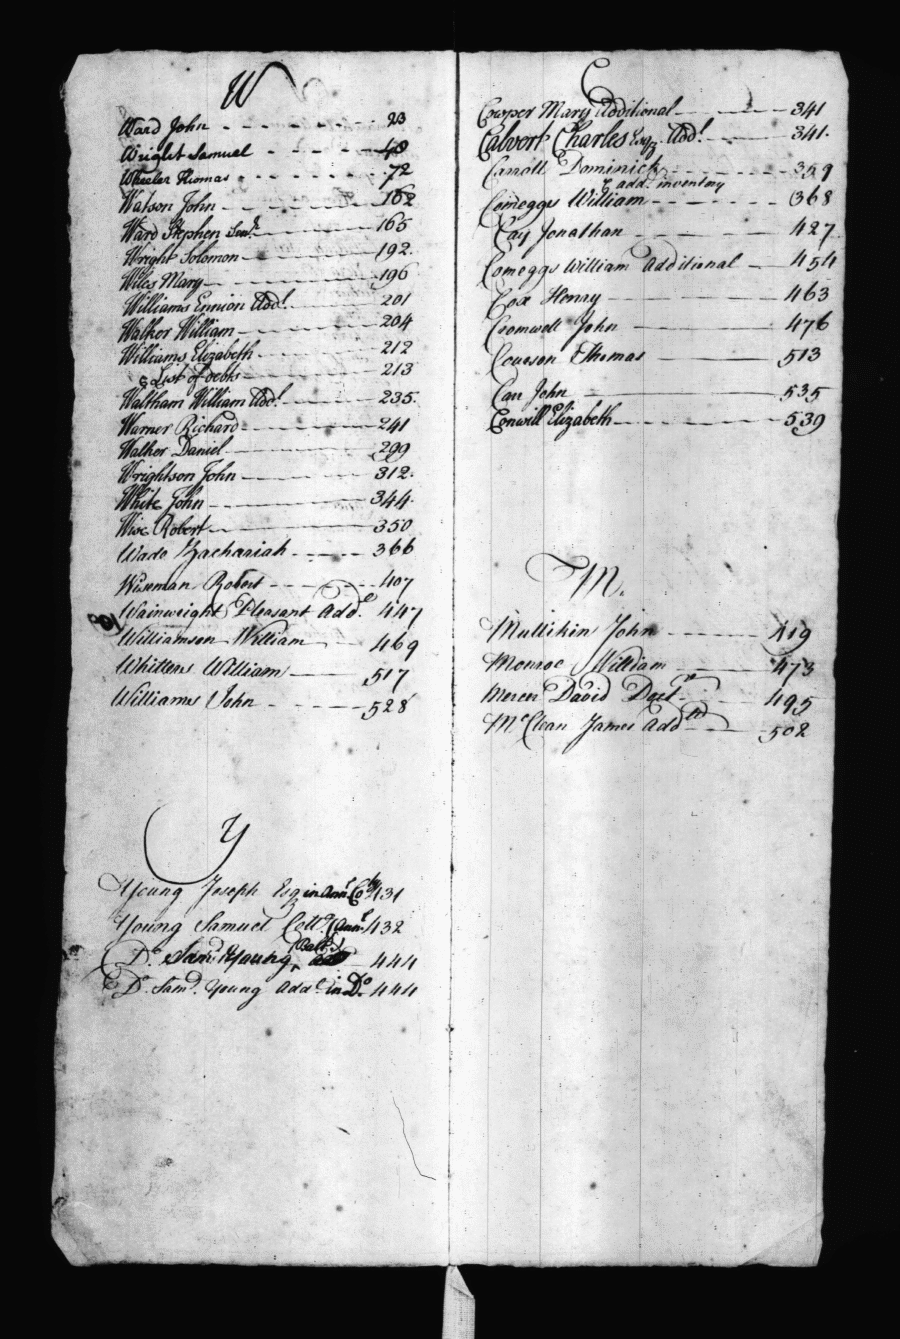 W
Ward John 23
Wright Samuel 48
Wheeler Thomas 72
Watson John 162
Ward Stephen Sen.r 165
Wright Solomon 192
Wiles Mary 196
Williams Ennion Add.l 201
Walker William 204
Williams Elizabeth 212
& List of Debts 213
Waltham William Add.l 235
Warner Richard 241
Walker Daniel 299
Wrightson John 312
White John 344
Wise Robert 350
Wade Zachariah 366
Wiseman Robert 407
Wainwright Pleasant Add.l 447
Williamson William 469
Whittens William 517
Williams John 528
Y
Young Joseph Esq in Ann.l Co 431
Young Samuel Coll.o (Ann.l 432
(Balt.)
D.o Sam.l Young, 444
D.o Sam.l Young Add.l in D.o 444
C
Cowper Mary Additional 341
Calvert Charles Esq.r Add.l 341
Carroll Dominick 359
& add.l inventory
Comeggs William 368
Cay Jonathan 427
Comeggs William Additional 454
Cox Henry 463
Cromwell John 476
Courson Thomas 513
Carr John 535
Conwill Elizabeth 539
M.
Mullikin John 419
Monroe William 473
Mercer David Doct.r 495
McClean James Add.l 502